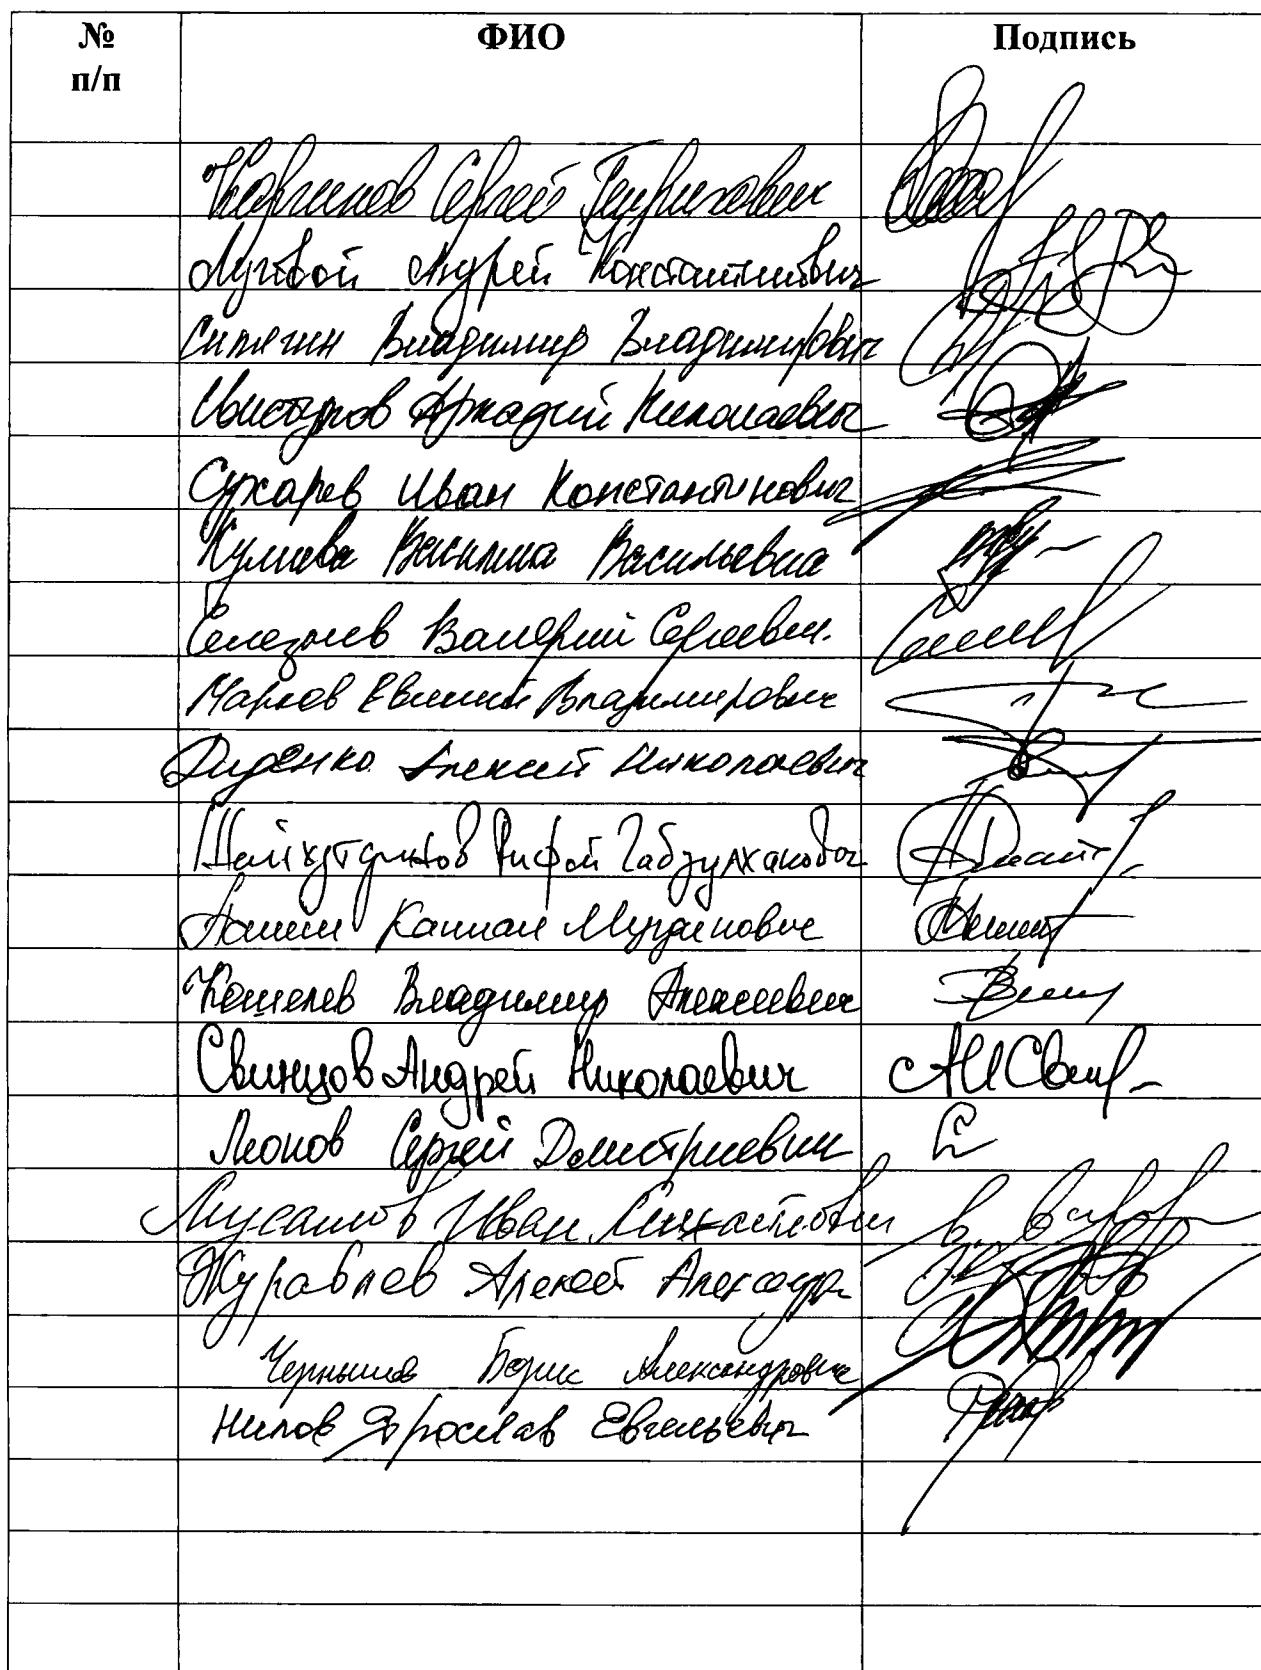 № п/п ФИО Подпись
Каргинов Сергей Генрихович
Луговой Андрей Константинович
Сипягин Владимир Владимирович
Свистунов Аркадий Николаевич
Сухарев Иван Константинович
Кулиева Василина Васильевна
Селезнев Валерий Сергеевич
Марков Евгений Владимирович
Диденко Алексей Николаевич
Шайхутдинов Рифат Габдулхакович
Панеш Каплан Мугдинович
Кошелев Владимир Алексеевич
Свинцов Андрей Николаевич
Леонов Сергей Дмитриевич
Мусатов Иван Михайлович
Журавлев Алексей Александр
Чернышов Борис Александрович
Нилов Ярослав Евгеньевич